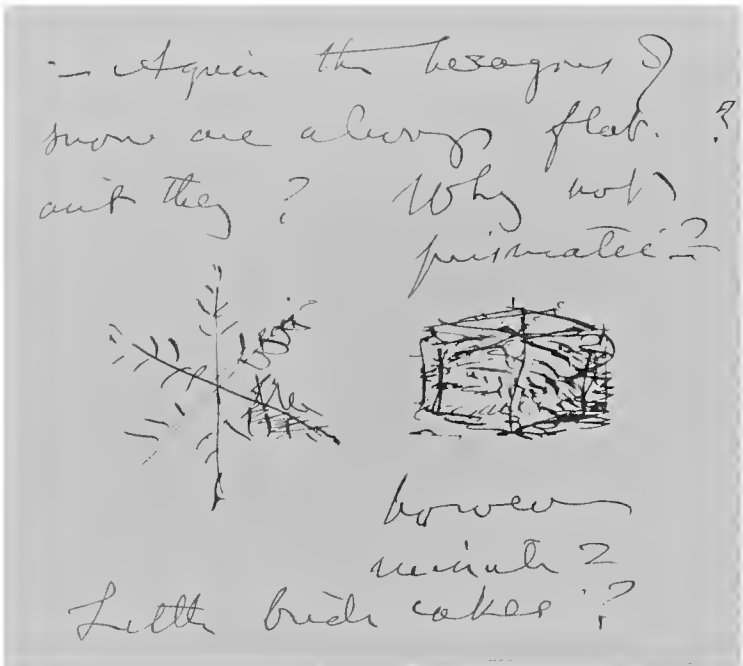 — Again the hexagons of
snow are always flat. ?
ain't they ? Why not
prismatic ?
however
minute ?
Little bride cakes ?